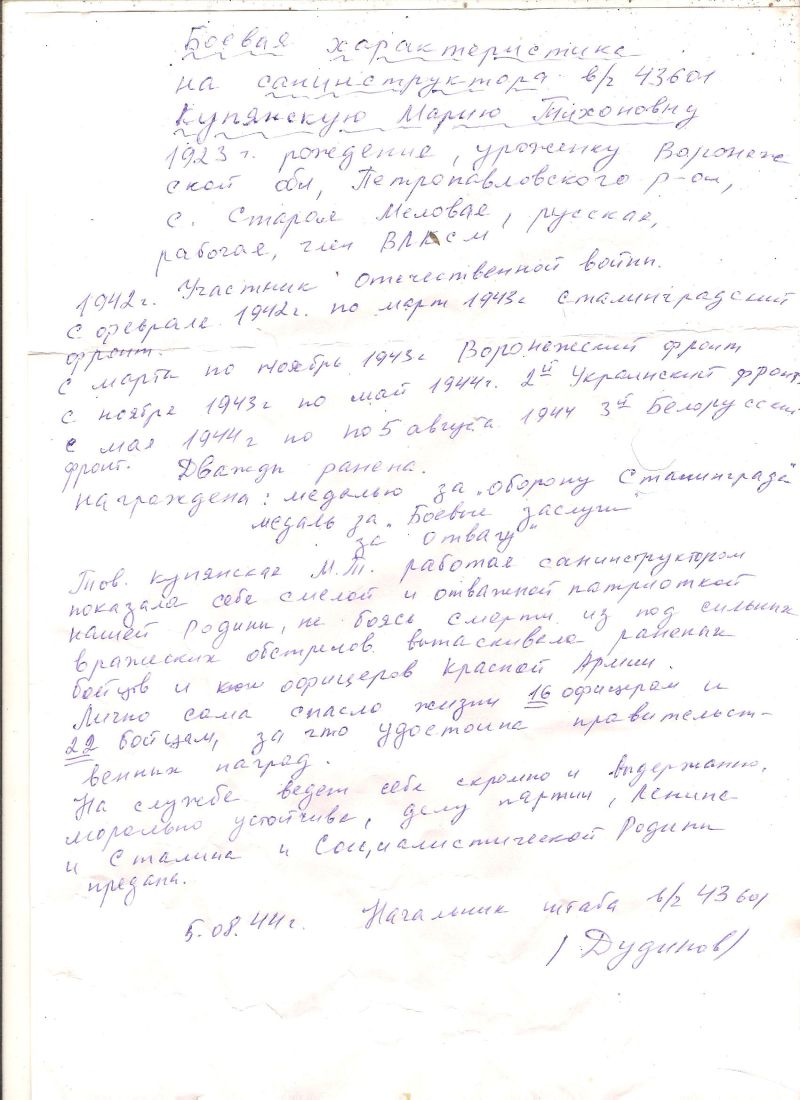 Боевая характеристика
на санинструктора в/ч 43601
Купянскую Марию Тихоновну
1923 г. рождение, уроженку Воронеж
ской обл, Петропавловского р-он,
с. Старая Меловая, русская,
рабочая, член ВЛКСМ
1942 г. Участник Отечественной войны.
с февраля 1942 г. по март 1943 г Сталинградский
фронт.
с марта по ноябрь 1943 г Воронежский фронт
с ноября 1943 г по май 1944 г. 2й Украинский фронт
с мая 1944 г по по 5 августа 1944 3й Белорусский
фронт. Дважды ранена.
награждена: медалью за „Оборону Сталинграда"
медаль за „Боевые заслуги"
за отвагу"
Тов. Купянская М.Т. работая санинструктором
показала себя смелой и отважной патриоткой
нашей Родины, не боясь смерти из под сильных
вражеских обстрелов вытаскивала раненых
бойцов и офицеров Красной Армии.
Лично сама спасло жизни 16 офицерам и
22 бойцам, за что удостоина правительст-
венных наград.
На службе ведет себя скромно и выдержанно,
морально устойчива, делу партии, Ленина
и Сталина и Социалистической Родины
предана.
5.08.44 г. Начальник штаба в/ч 43601
/Дудинов/